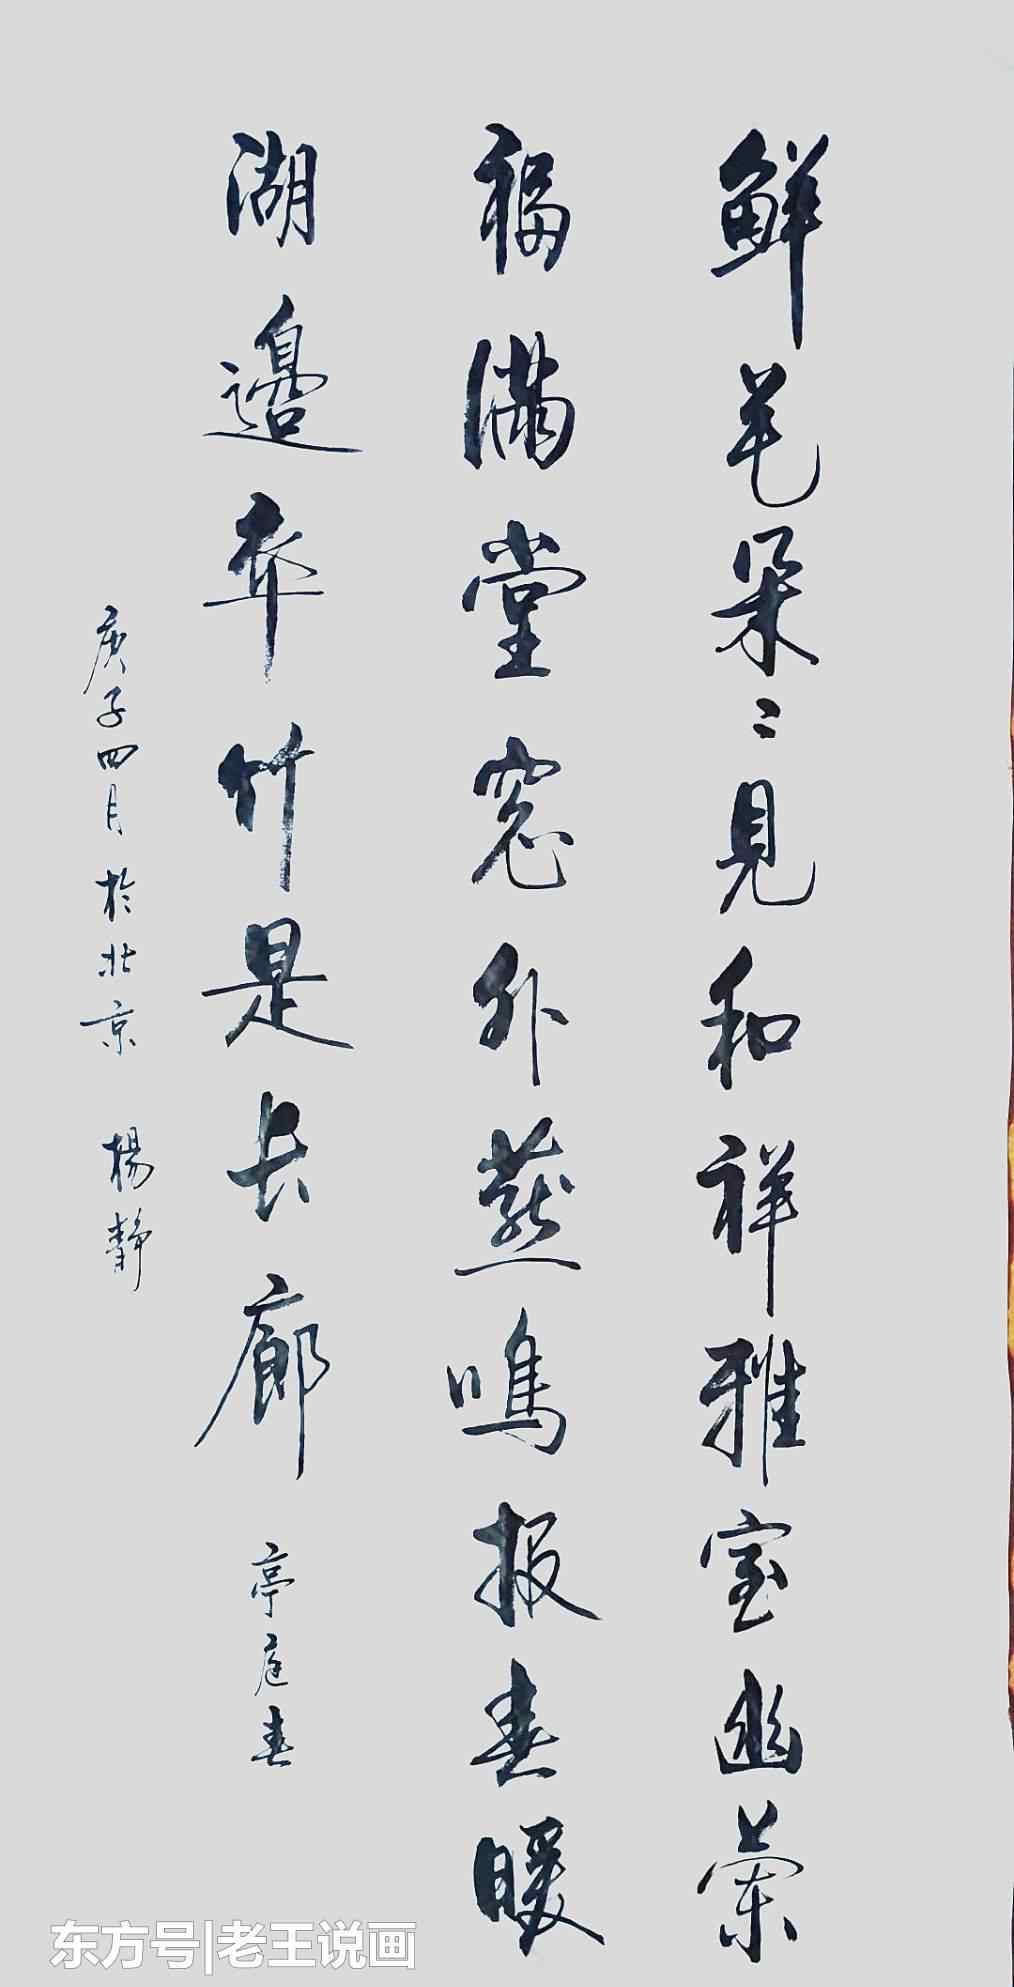 鲜花朵〻見和祥雅室幽蘭
福满堂窓外燕鳴报春暖
湖邊奇竹是长廊
亭庭春
庚子四月於北京 楊靜
东方号|老王说画